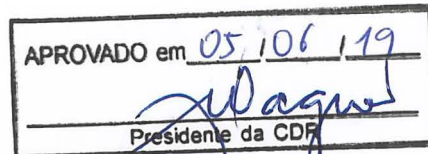 APROVADO em 05/06/19
Wagner
Presidente da CDF